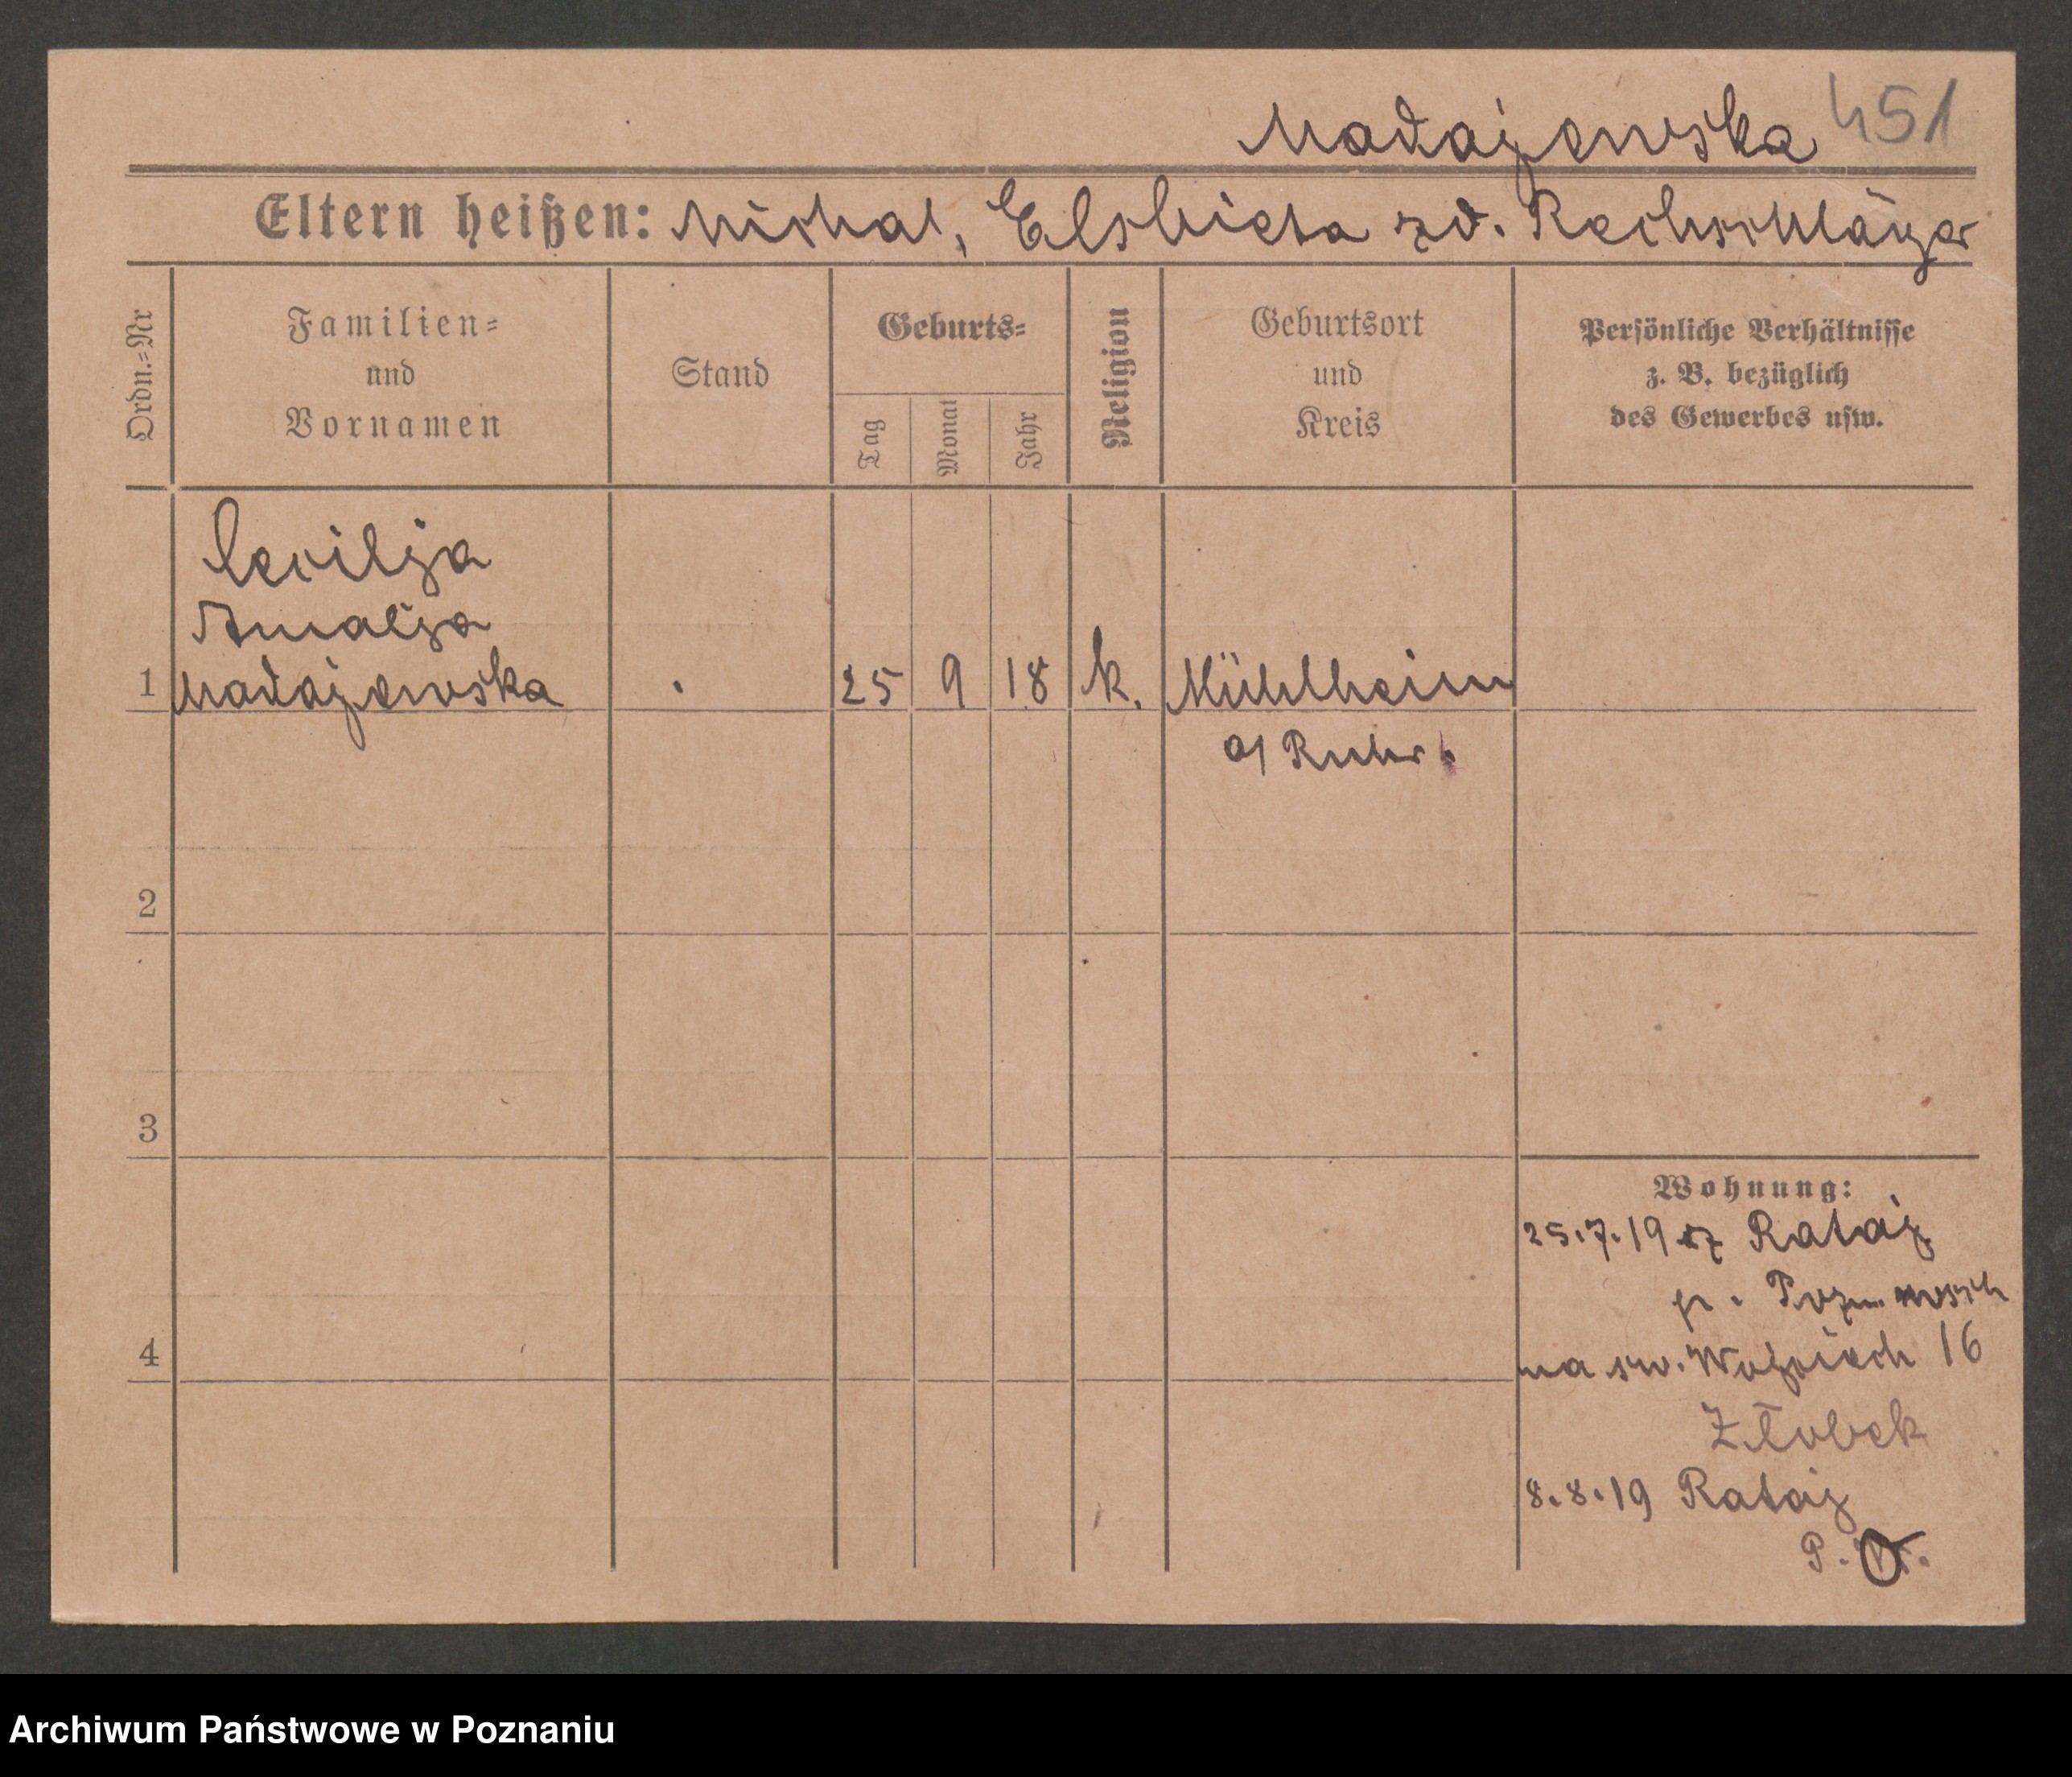 Madajewska 451
Eltern heißen: Michal, Elsbieta zd. Rechschläger
Ordn.=Nr
Familien=
und
Vornamen
Stand
Geburts=
Tag
Monat
Jahr
Religion
Geburtsort
und
Kreis
Persönliche Verhältnisse
z. B. bezüglich
des Gewerbes usw.
Cecilja
Amalja
1 Madajewska 25 9 18 k. Mühlheim
a/ Ruhr.
2
3
4
Wohnung:
25.7.19 Rataj
p. Pozn.
na św. Wojciech 16
Żłobek
8.8.19 Rataj
P.
Archiwum Państwowe w Poznaniu